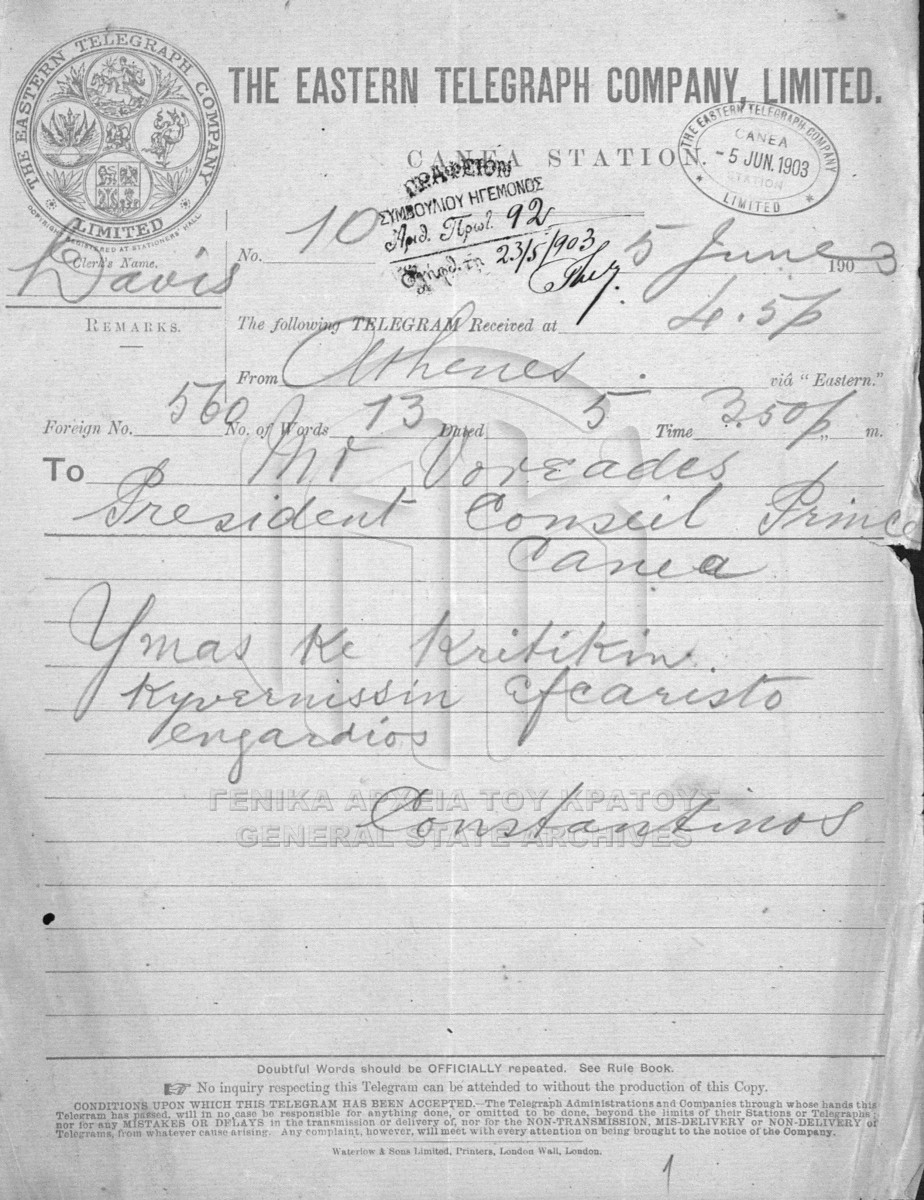 THE EASTERN TELEGRAPH COMPANY
LIMITED
COPYRIGHT REGISTERED AT STATIONERS' HALL
THE EASTERN TELEGRAPH COMPANY, LIMITED.
CANEA STATION.
THE EASTERN TELEGRAPH COMPANY
CANEA
- 5 JUN. 1903
STATION
LIMITED
ΓΡΑΦΕΙΟΝ
ΣΥΜΒΟΥΛΙΟΥ ΗΓΕΜΟΝΟΣ
Ἀριθ. Πρωτ. 92
23/5/903
Clerk's Name.
Davis
No. 10
5 June 1903
REMARKS.
The following TELEGRAM Received at 4.5p
From Athenes viâ "Eastern."
Foreign No. 560 No. of Words 13 Dated 5 Time 3.50p m.
To Mr Voreades
President Conseil Prince
Canea
Ymas ke kritikin
Kyvernissin efcaristo
engardios
Constantinos
ΓΕΝΙΚΑ ΑΡΧΕΙΑ ΤΟΥ ΚΡΑΤΟΥΣ
GENERAL STATE ARCHIVES
Doubtful Words should be OFFICIALLY repeated. See Rule Book.
☞ No inquiry respecting this Telegram can be attended to without the production of this Copy.
CONDITIONS UPON WHICH THIS TELEGRAM HAS BEEN ACCEPTED.—The Telegraph Administrations and Companies through whose hands this
Telegram has passed, will in no case be responsible for anything done, or omitted to be done, beyond the limits of their Stations or Telegraphs;
nor for any MISTAKES OR DELAYS in the transmission or delivery of, nor for the NON-TRANSMISSION, MIS-DELIVERY or NON-DELIVERY of
Telegrams, from whatever cause arising. Any complaint, however, will meet with every attention on being brought to the notice of the Company.
Waterlow & Sons Limited, Printers, London Wall, London.
1